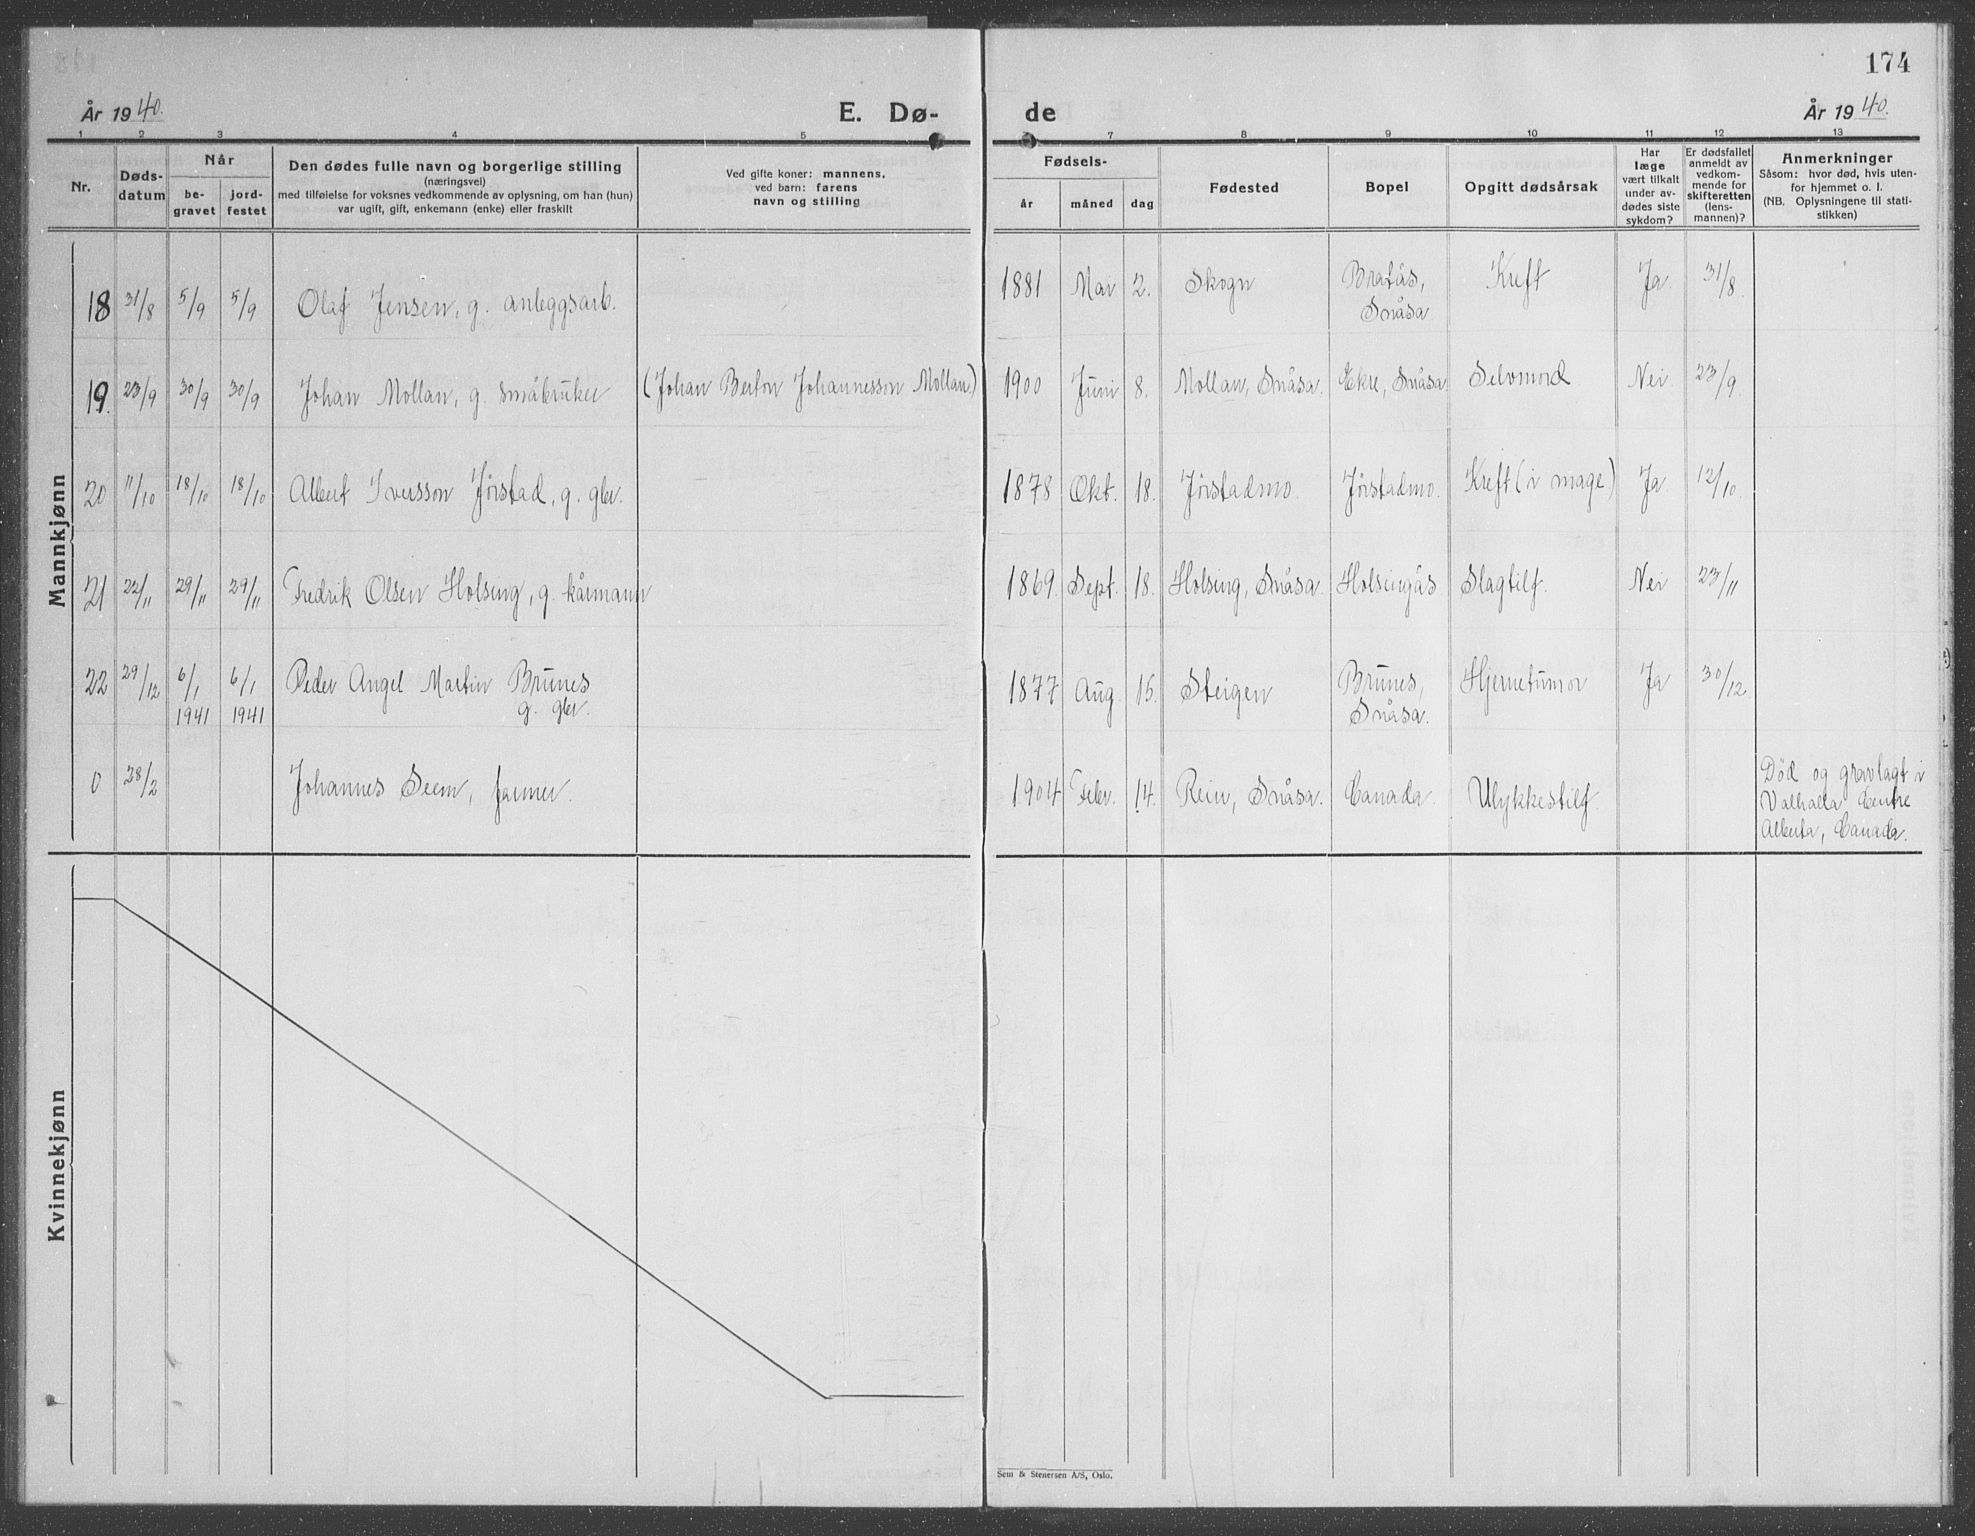 174
År 1940.
E. Dø-
de
År 1940.
1 2 3 4 5 7 8 9 10 11 12 13
Nr.
Døds-
datum
Når
be-
gravet
jord-
festet
Den dødes fulle navn og borgerlige stilling
(næringsvei)
med tilføielse for voksnes vedkommende av oplysning, om han (hun)
var ugift, gift, enkemann (enke) eller fraskilt
Ved gifte koner: mannens,
ved barn: farens
navn og stilling
Fødsels-
år måned dag
Fødested
Bopel
Opgitt dødsårsak
Har
læge
vært tilkalt
under av-
dødes siste
sykdom?
Er dødsfallet
anmeldt av
vedkom-
mende for
skifteretten
(lens-
mannen)?
Anmerkninger
Såsom: hvor død, hvis uten-
for hjemmet o. l.
(NB. Oplysningene til stati-
stikken)
Mannkjønn
18 31/8 5/9 5/9 Olaf Jensen, g. anleggsarb. 1881 Mai 2. Skogn Bratås, Kreft Ja 31/8.
Snåsa
19. 23/9 30/9 30/9 Johan Mollan, g. småbruker (Johan Berton Johannesson Mollan) 1900 Juni 8. Mollan, Snåsa. Ekre, Snåsa Selvmord Nei 23/9
20 11/10 18/10 18/10 Albert Iversson Jörstad, g. gbr. 1878 Okt. 18. Jörstadmo. Jörstadmo. Kreft (i mage) Ja 12/10.
21 22/11 29/11 29/11 Fredrik Olsen Holsing, g. kårmann 1869 Sept. 18. Holsing, Snåsa Holsingås Slagtilf. Nei 23/11
22 29/12 6/1 6/1 Peder Angel Martin Brunes 1877 Aug. 15. Steigen Brunes, Hjernetumor Ja 30/12.
1941 1941 g. gbr. Snåsa.
0 28/2 Johannes Seem, farmer. 1904 Febr. 14. Rein, Snåsa. Canada. Ulykkestilf. Död og gravlagt i
Valhalla Centre
Alberta, Canada.
Kvinnekjønn
Sem & Stenersen A/S, Oslo.